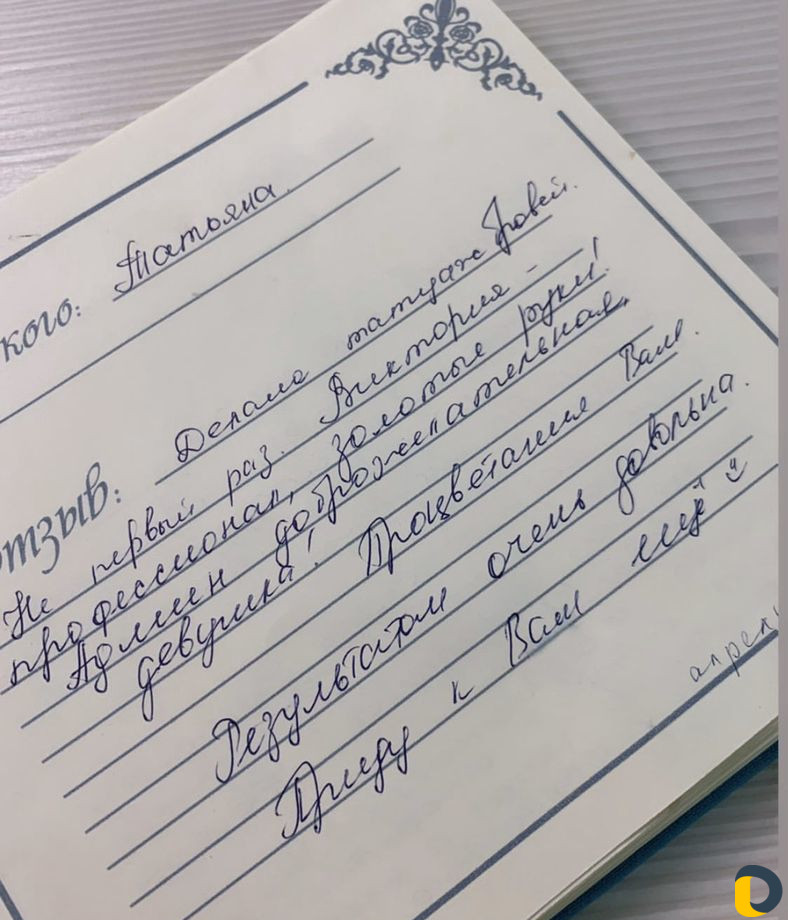 кого: Татьяна.
отзыв: Делала татуаж бровей.
Не первый раз. Виктория -
профессионал, золотые руки!
Админ доброжелательная
девушка! Процветания Вам.
Результатом очень довольна.
Приду к Вам ещё
апрель